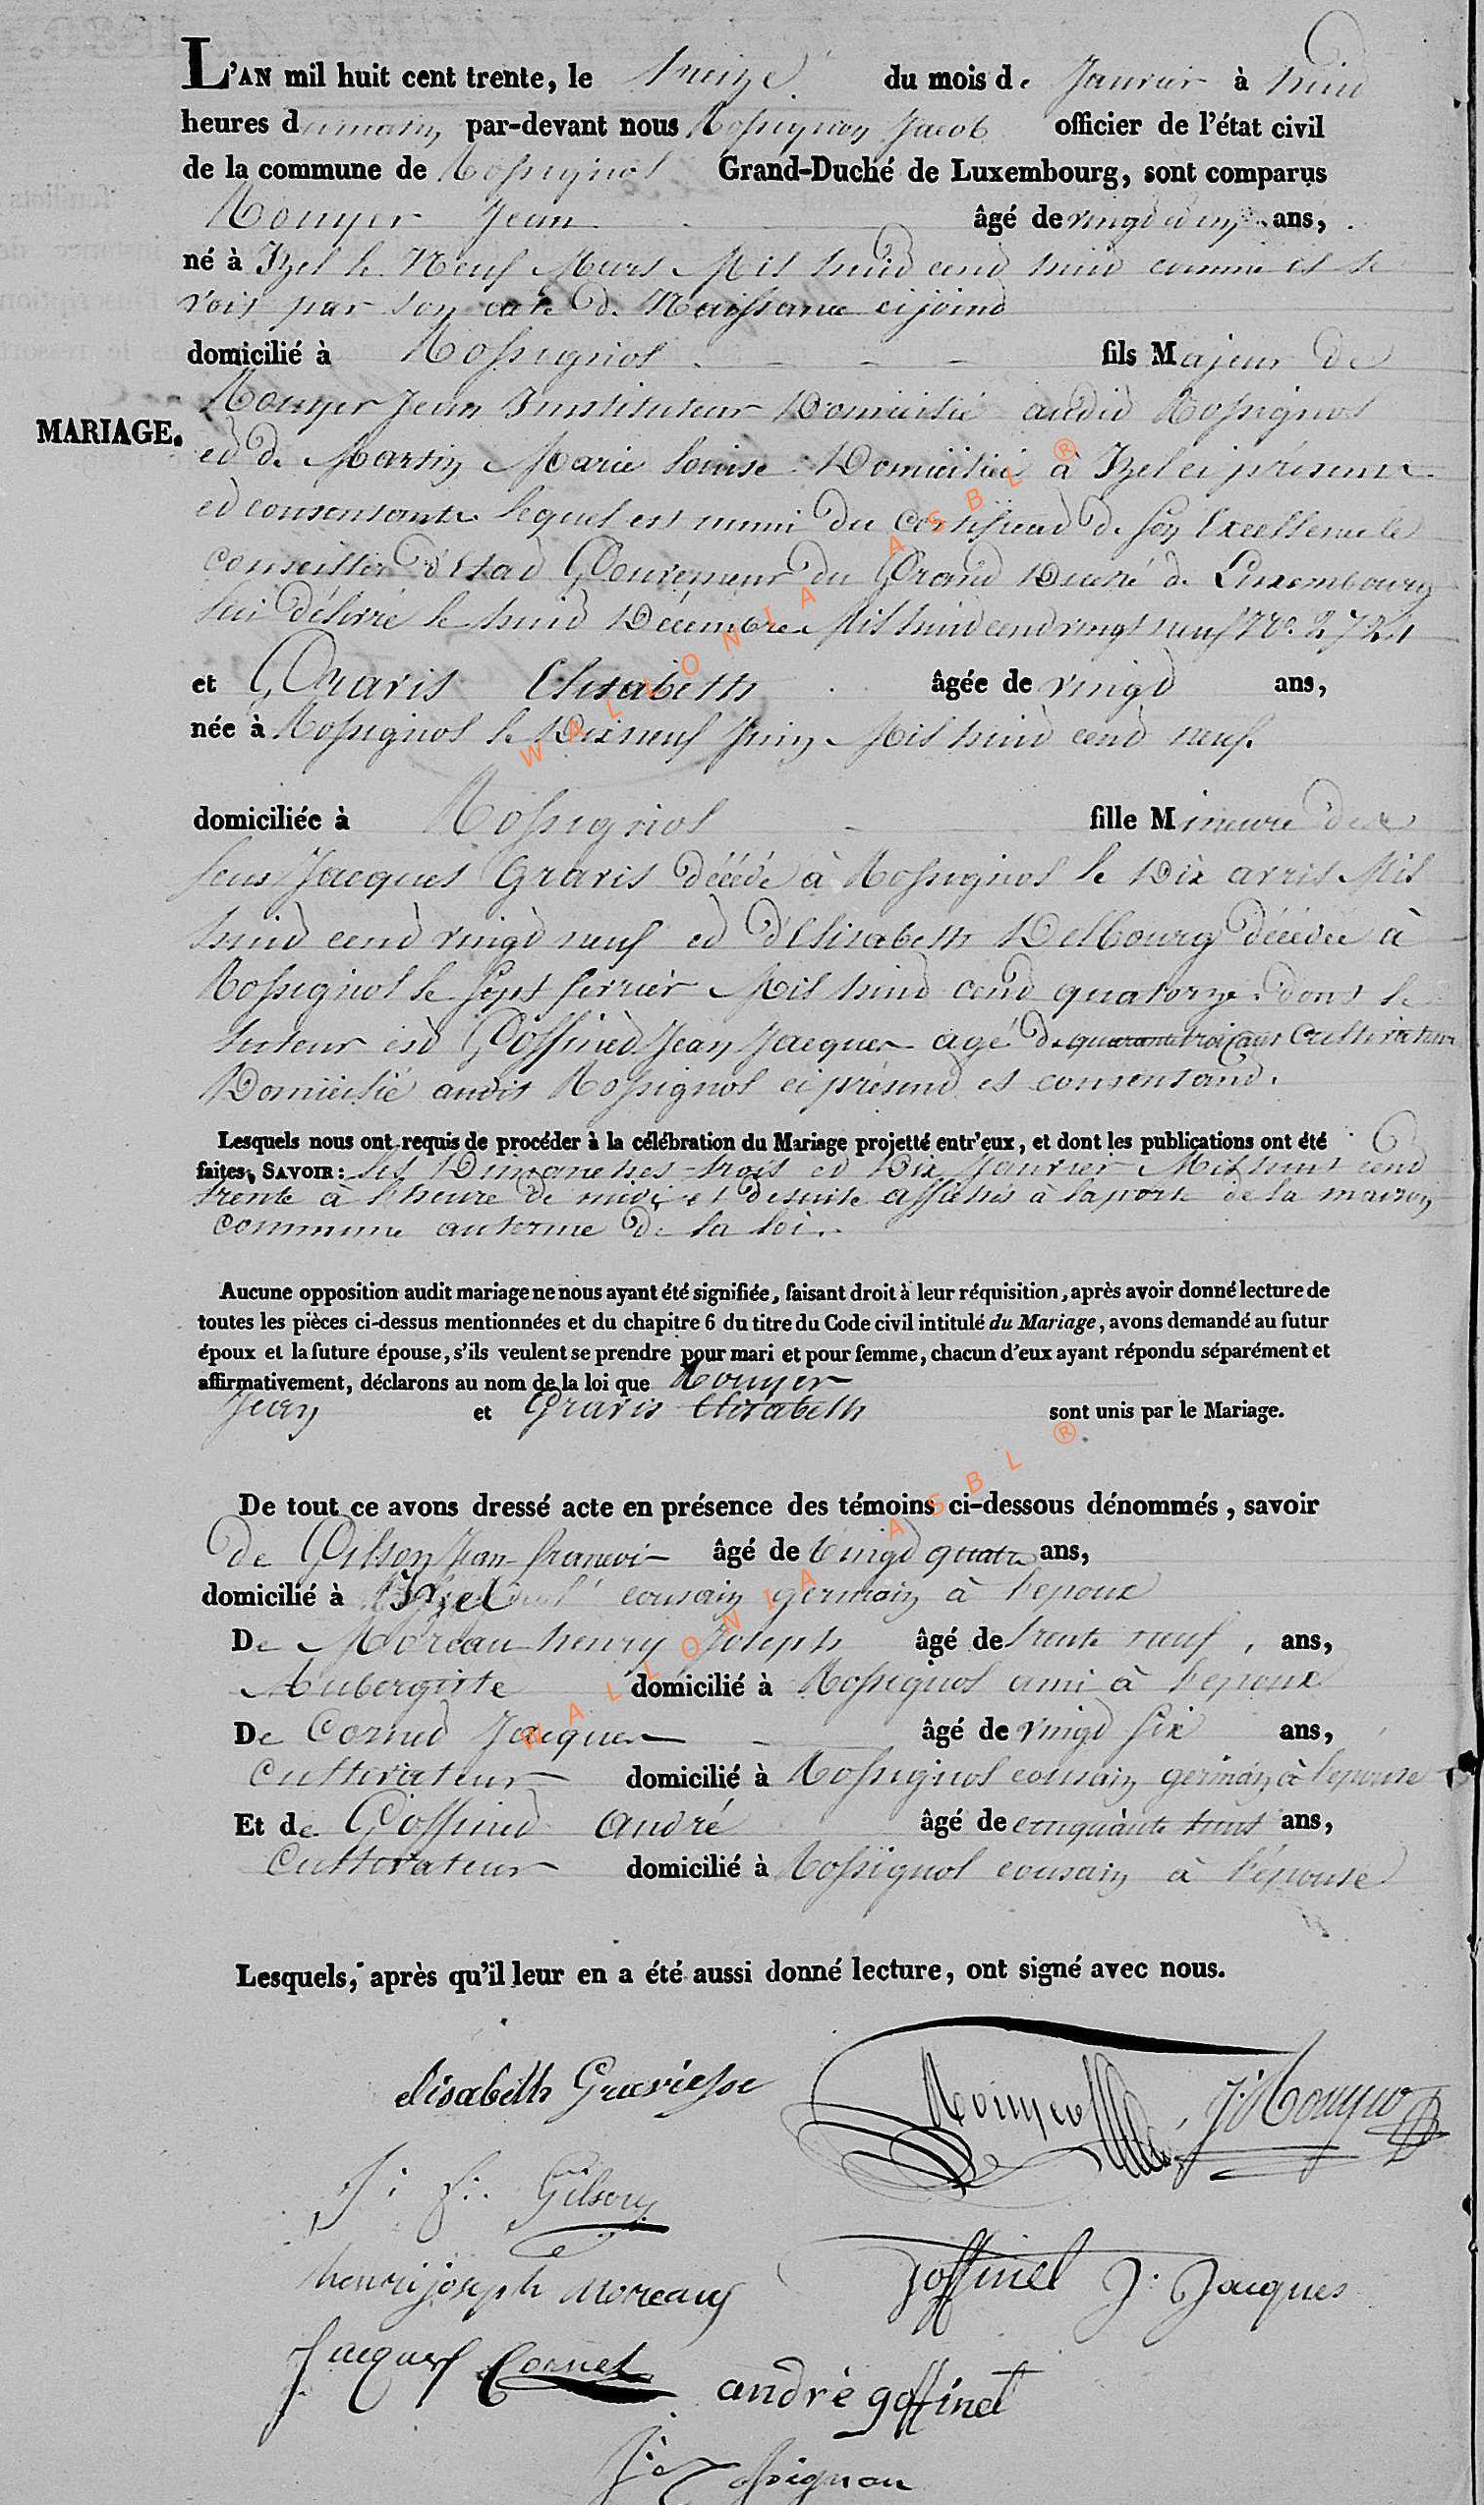 L'AN mil huit cent trente, le treize du mois de Janvier à huid
heures dumatin par-devant nous Rossignon Jacob officier de l'état civil
de la commune de Rossignol Grand-Duché de Luxembourg, sont comparus
Rouyer Jean âgé de vingd ed un ans,
né à Izel le Neuf Mars Mil huid cend huid comme il se
voit par son acte de Naissance cijoind
domicilié à Rossignol fils Majeur de
Rouyer Jean Instituteur Domicilié audid Rossignol
MARIAGE.
ed de Martin Marie Louise Domiciliée à Izel ci présente
ed consentante lequel est muni du certificad de son Excellence le
conseiller d'Etad Gouverneur du Grand Duché de Luxembourg
lui délivré le huid Décembre Mil huid cend vingt neuf No. 2724
et Gravis Elisabeth âgée de vingd ans,
née à Rossignol le Dixneuf Juin Mil huid cend neuf.
domiciliée à Rossignol fille Mineure de
feux Jacques Gravis décédé à Rossignol le Dix avril Mil
huid cend vingd neuf ed d'Elisabeth Delbourg décédée à
Rossignol le Sept ferrier Mil huid cend quatorze. dont le
tuteur esd Goffined Jean Jacques agé de quarante trois ans Cultivateur
Domicilié audit Rossignol ci présend et consentand.
Lesquels nous ont requis de procéder à la célébration du Mariage projetté entr'eux, et dont les publications ont été
faites, SAVOIR: les Dimanches trois ed Dix Janvier Mil huid cend
trente à l'heure de midi et desuite affichés à laporte de la maison
commune auterme de la loi.
Aucune opposition audit mariage ne nous ayant été signifiée, faisant droit à leur réquisition, après avoir donné lecture de
toutes les pièces ci-dessus mentionnées et du chapitre 6 du titre du Code civil intitulé du Mariage, avons demandé au futur
époux et la future épouse, s'ils veulent se prendre pour mari et pour femme, chacun d'eux ayant répondu séparément et
affirmativement, déclarons au nom de la loi que Rouyer
Jean et Gravis Elisabeth sont unis par le Mariage.
De tout ce avons dressé acte en présence des témoins ci-dessous dénommés, savoir
de Gilson Jean-francoi âgé de vingd quatre ans,
domicilié à Izel cousain germain à l'epoux
De Moreau henry Joseph âgé de trente neuf ans,
Aubergiste domicilié à Rossignol ami à l'epoux
De Corned Jacques âgé de vingd six ans,
Cultivateur domicilié à Rossignol cousain germain à l'epouse
Et de Goffined André âgé de cinquante huit ans,
Cultivateur domicilié à Rossignol cousain à l'épouse
Lesquels, après qu'il leur en a été aussi donné lecture, ont signé avec nous.
elisabeth Graviesse Rouyer J. Rouyer
J: f: Gilson
henri joseph moreaux Goffinet J: Jacques
Jacques Cornet andré goffinet
J: Rossignon
WALLONIA ASBL ®
WALLONIA ASBL ®